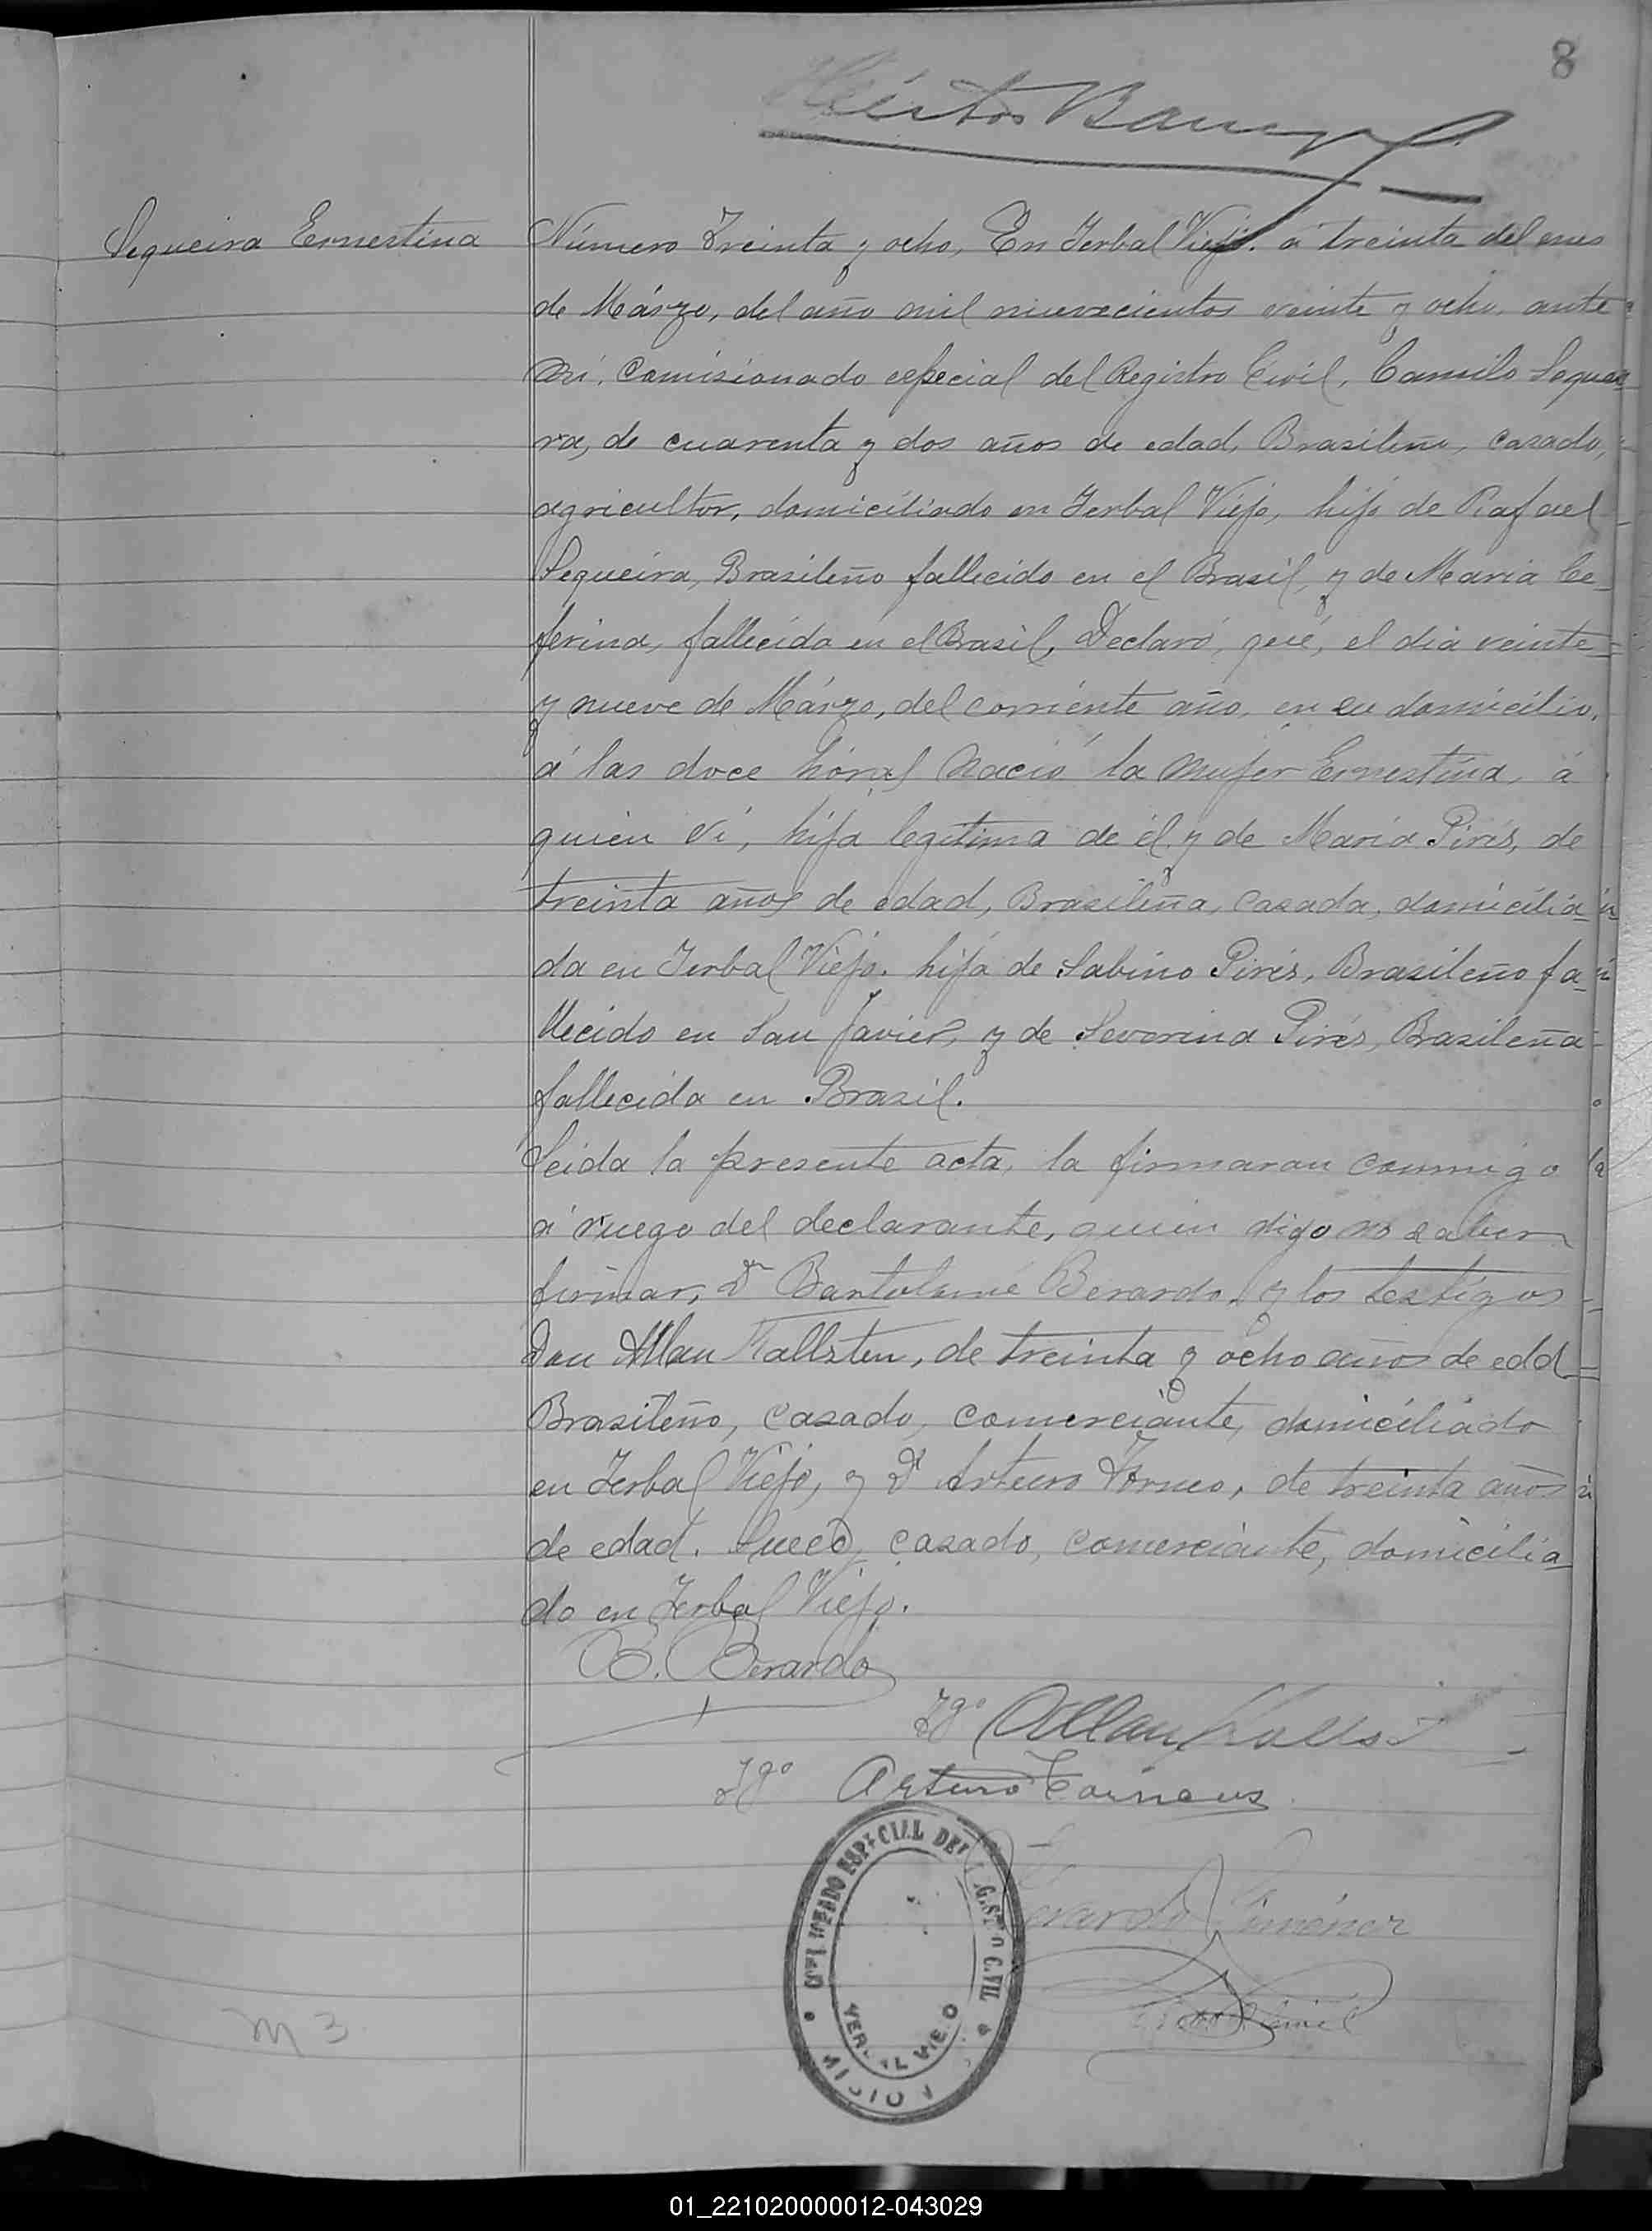 8
Sequeira Ernestina
Número Treinta y ocho, En Yerbal Viejo. á treinta del mes
de Márzo, del año mil nuevecientos veinte y ocho, ante
mi, Comisionado especial del Registro Civil, Camilo Sequei
ra, de cuarenta y dos años de edad, Brasileño, casado,
agricultor, domiciliado en Yerbal Viejo, hijo de Rafael
Sequeira, Brasileño fallecido en el Brasil, y de Maria Ce_
ferina, fallecida en el Brasil, Declaró, qué, el dia veinte_
y nueve de Márzo, del corriente año, en su domicilio,
á las doce horas nació la mujer Ernestina, á
quien ví, hija legitima de él y de Maria Pirés, de
treinta años de edad, Brasileña, casada, domicilia_
da en Yerbal Viejo. hija de Sabino Pirés, Brasileño fa_
llecido en San Javier, y de Severina Pirés, Brasileña
fallecida en Brasil.
Leida la presente acta, la firmaran conmigo
á ruego del declarante, quien digo no saber
firmar, Dn Bartolomé Berardo, y los testigos
Don Allan Kallsten, de treinta y ocho años de edd
Brasileño, casado, comerciante, domiciliado
en Yerbal Viejo, y Dn Arturo Torneo, de treinta años
de edad. Sueco, casado, comerciante, domicilia_
do en Yerbal Viejo.
B. Berardo
Tgo Allan Kallst
Tgo Arturo Törneus
Gerardo Giménez
ESPECIAL DEL
C.VIL
M 3
01_221020000012-043029